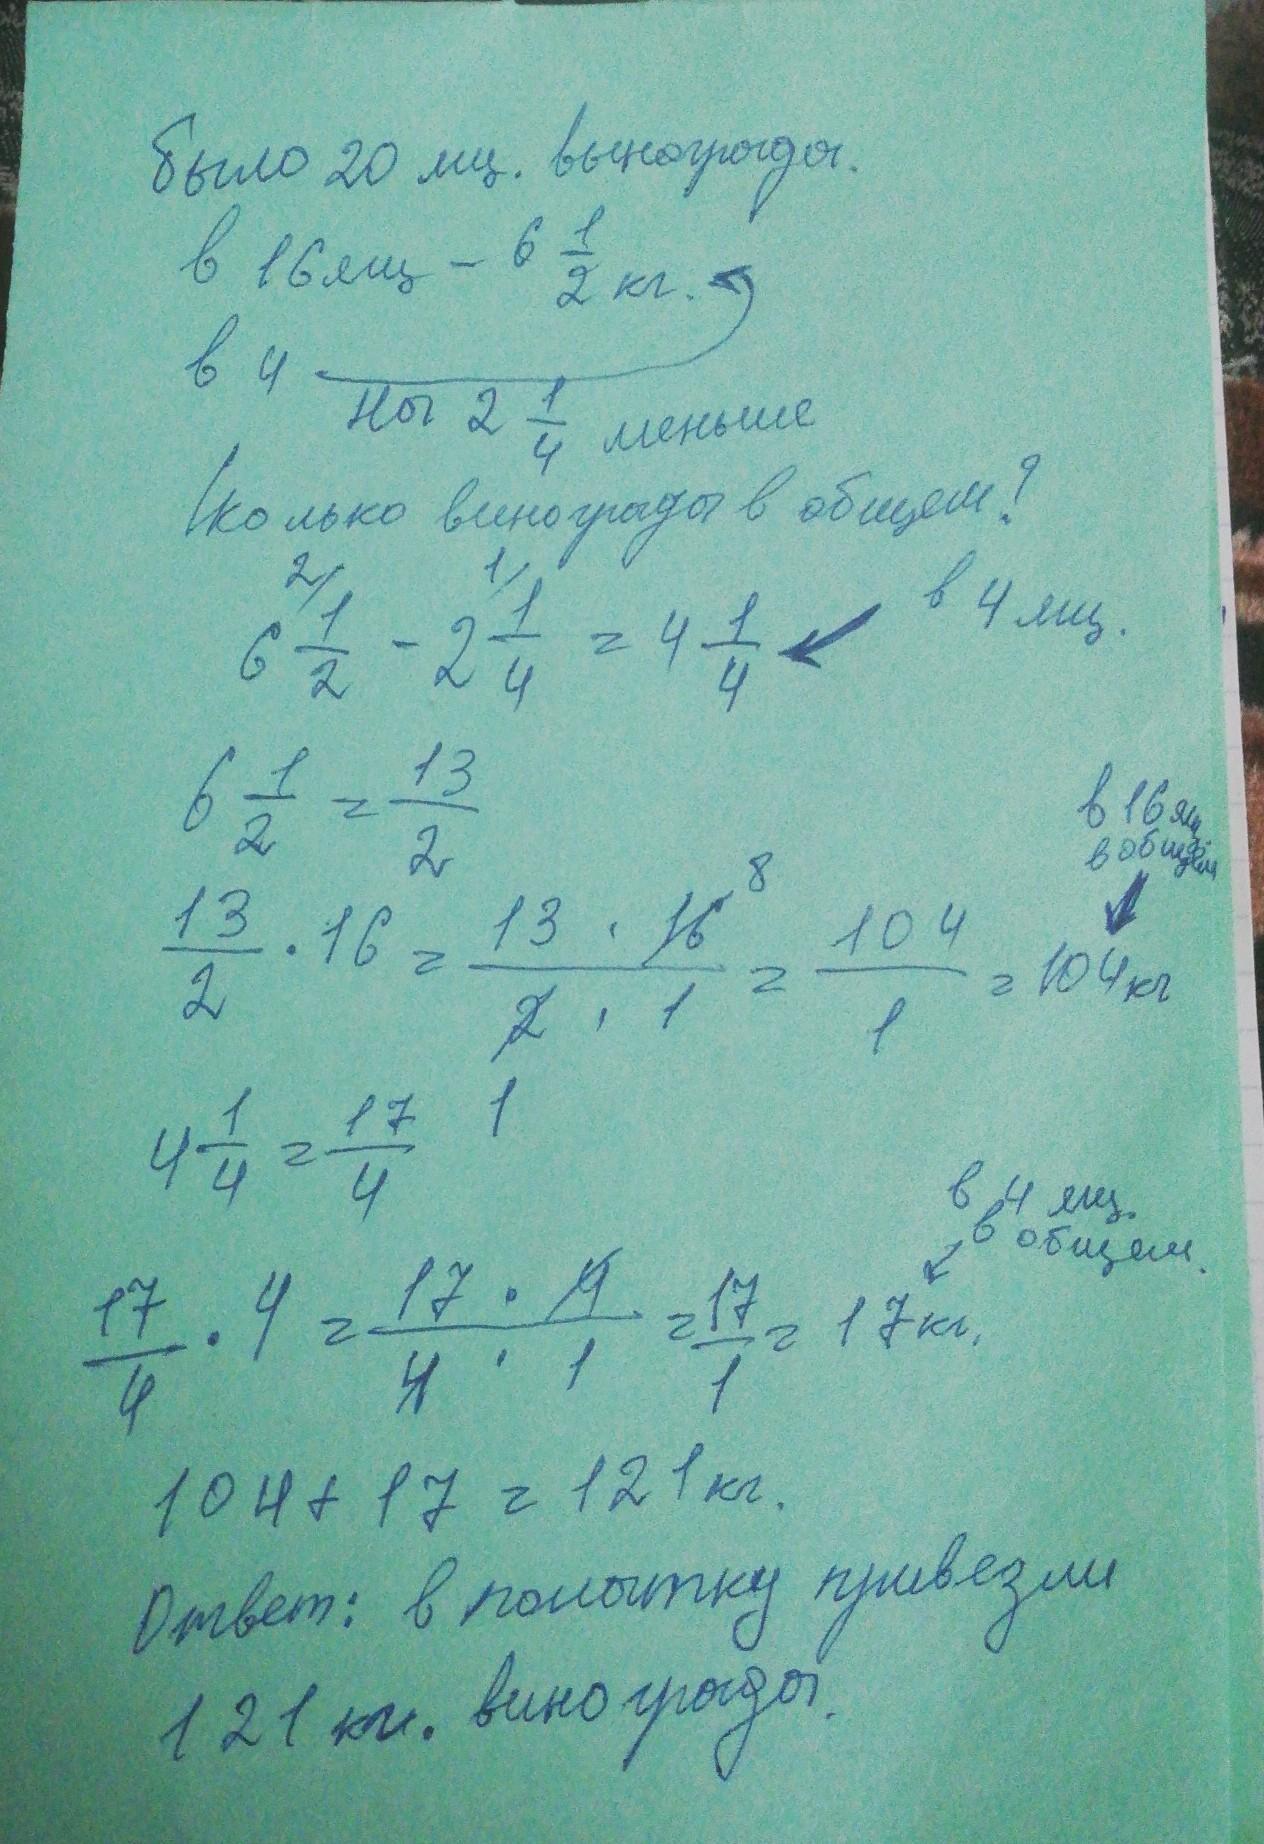 было 20 ящ. винограда.
в 16 ящ - 6 1/2 кг.
в 4
на 2 1/4 меньше
Сколько винограда в общем?
2/ 1/
6 1/2 - 2 1/4 = 4 1/4 в 4 ящ.
6 1/2 = 13/2
в 16 ящ
в общем
13/2 · 16 = 13 · 16 8 / 2 · 1 = 104/1 = 104 кг
1
4 1/4 = 17/4
в 4 ящ.
в общем.
17/4 · 4 = 17 · 4 / 4 · 1 = 17/1 = 17 кг.
104 + 17 = 121 кг.
Ответ: в палатку привезли
121 кг. винограда.